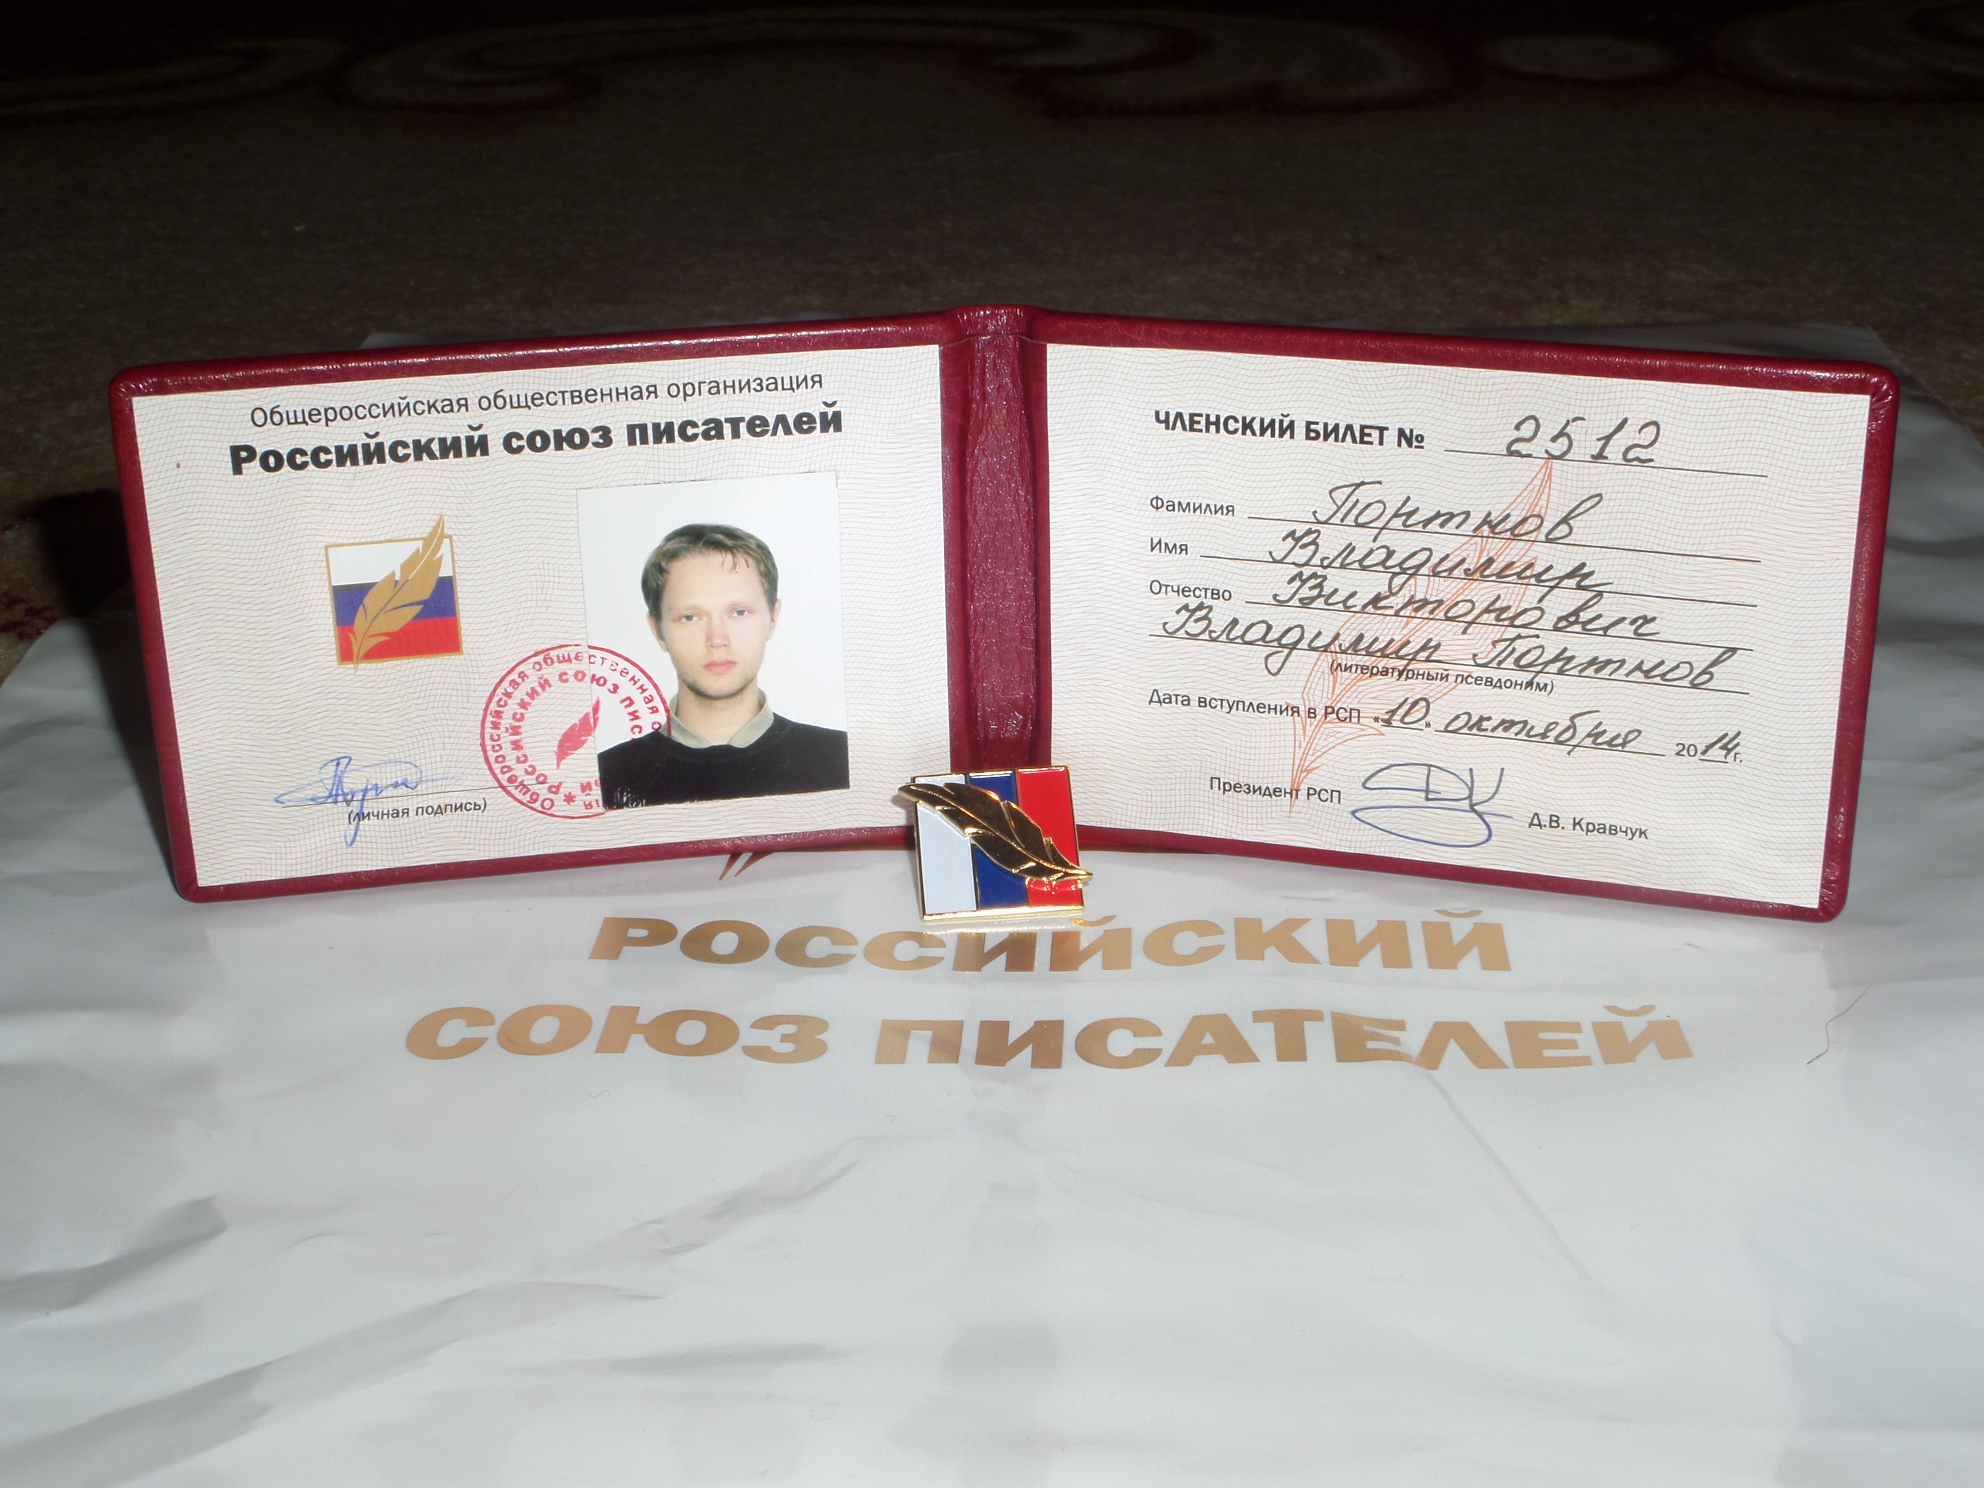 Общероссийская общественная организация
Российский союз писателей
Общероссийская общественная о
Российский союз писа
(личная подпись)
ЧЛЕНСКИЙ БИЛЕТ № 2512
Фамилия Портнов
Имя Владимир
Отчество Викторович
Владимир Портнов
(литературный псевдоним)
Дата вступления в РСП «10» октября 2014г.
Президент РСП Д.В. Кравчук
РОССИЙСКИЙ
СОЮЗ ПИСАТЕЛЕЙ